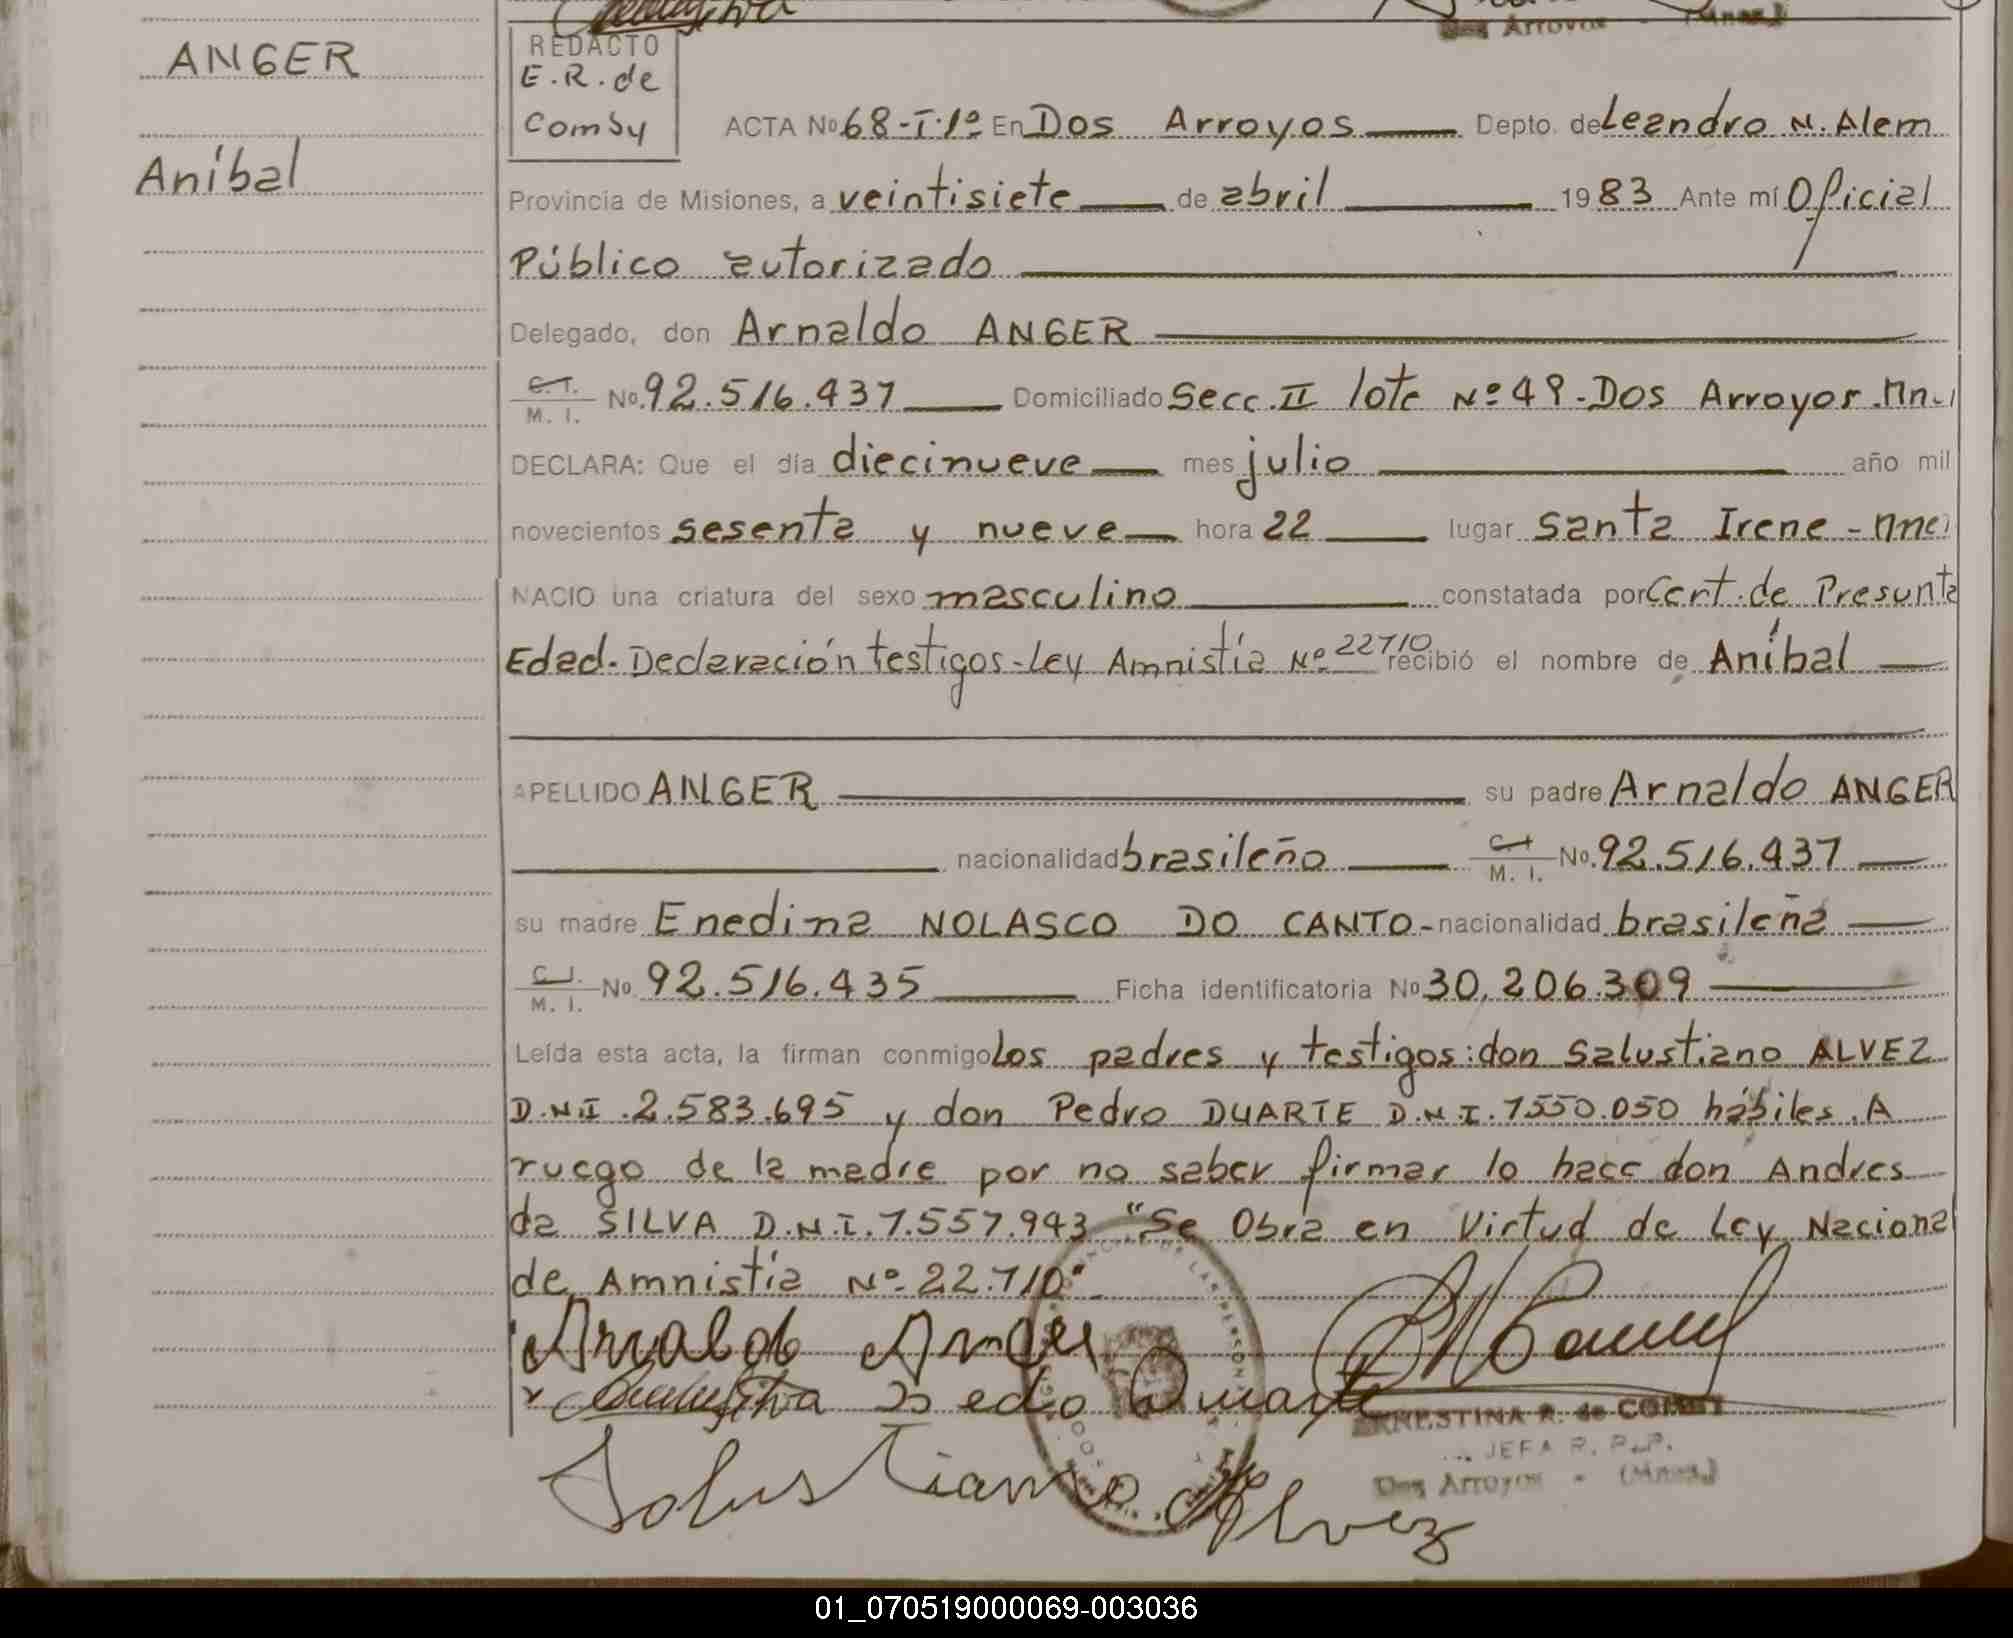 Dos Arroyos - (Mnes.)
ANGER
Aníbal
REDACTO
E.R. de
Comby
ACTA No 68-I-1º En Dos Arroyos Depto. de Leandro N. Alem
Provincia de Misiones, a veintisiete de abril 1983 Ante mí Oficial
Público autorizado
Delegado, don Arnaldo ANGER
C. I. / M. I. No. 92.516.437 Domiciliado Secc. II lote Nº 49 - Dos Arroyos. Mn.
DECLARA: Que el día diecinueve mes julio año mil
novecientos sesenta y nueve hora 22 lugar Santa Irene - Mnes
NACIO una criatura del sexo masculino constatada por Cert. de Presunta
Edad. Declaración testigos - Ley Amnistía Nº 22710 recibió el nombre de Aníbal
APELLIDO ANGER su padre Arnaldo ANGER
nacionalidad brasileño C I / M. I. No. 92.516.437
su madre Enedina NOLASCO DO CANTO - nacionalidad brasileña
C. I. / M. I. No. 92.516.435 Ficha identificatoria No 30.206.309
Leída esta acta, la firman conmigo los padres y testigos: don Salustiano ALVEZ
D.N.I. 2.583.695 y don Pedro DUARTE D.N.I. 7550.050 hábiles. A
ruego de la madre por no saber firmar lo hace don Andres
da SILVA D.N.I. 7.557.943 "Se Obra en Virtud de Ley Nacional
de Amnistía Nº 22.710"
Arnaldo Anger
Pedro Duarte
ERNESTINA R. de COMBY
JEFA R. P. P.
Dos Arroyos - (Mnes.)
Salustiano Alvez
01_070519000069-003036